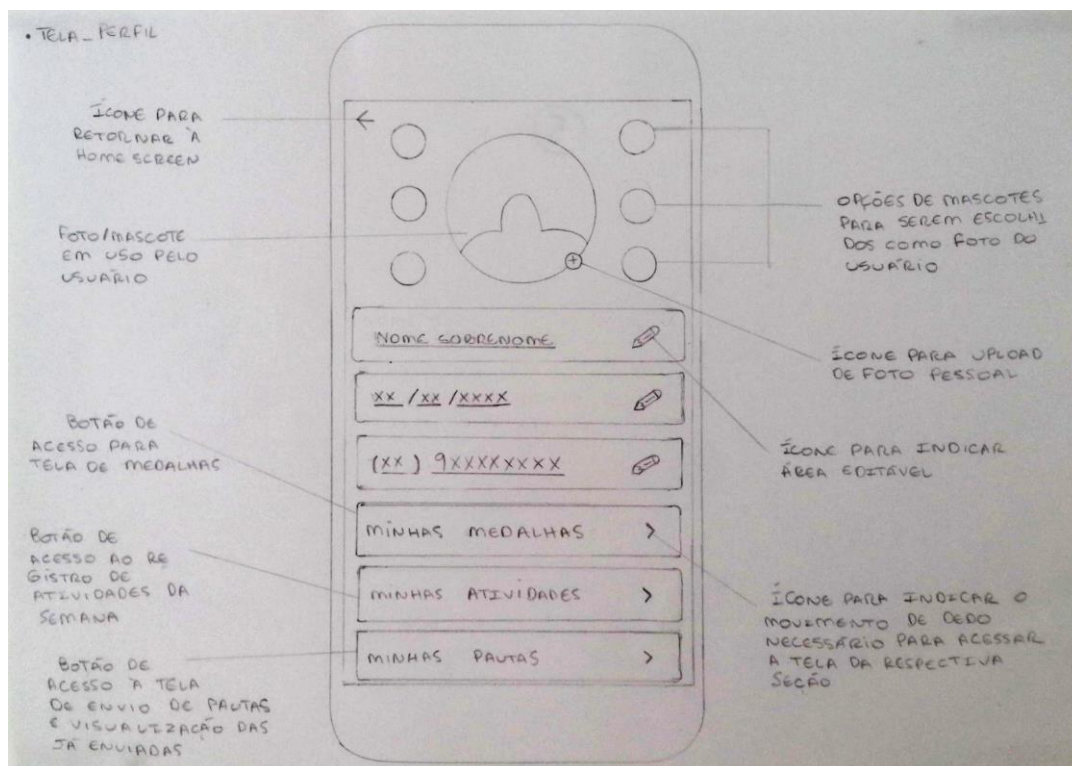 • TELA_PERFIL
ÍCONE PARA
RETORNAR À
HOME SCREEN
FOTO/MASCOTE
EM USO PELO
USUÁRIO
BOTÃO DE
ACESSO PARA
TELA DE MEDALHAS
BOTÃO DE
ACESSO AO RE
GISTRO DE
ATIVIDADES DA
SEMANA
BOTÃO DE
ACESSO À TELA
DE ENVIO DE PAUTAS
E VISUALIZAÇÃO DAS
JÁ ENVIADAS
NOME SOBRENOME
XX / XX / XXXX
(XX) 9XXXXXXXX
MINHAS MEDALHAS >
MINHAS ATIVIDADES >
MINHAS PAUTAS >
OPÇÕES DE MASCOTES
PARA SEREM ESCOLHI
DOS COMO FOTO DO
USUÁRIO
ÍCONE PARA UPLOAD
DE FOTO PESSOAL
ÍCONE PARA INDICAR
ÁREA EDITÁVEL
ÍCONE PARA INDICAR O
MOVIMENTO DE DEDO
NECESSÁRIO PARA ACESSAR
A TELA DA RESPECTIVA
SEÇÃO